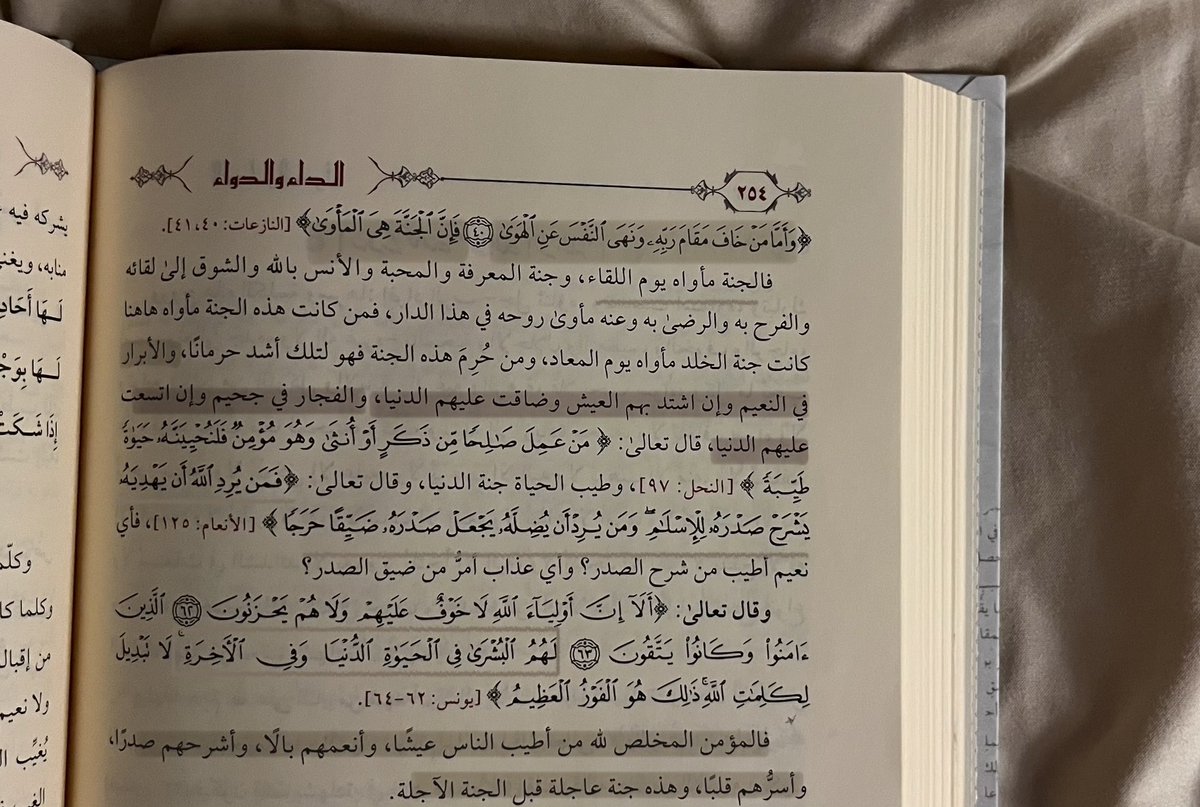 ٢٥٤
الداء والدواء
﴿وَأَمَّا مَنْ خَافَ مَقَامَ رَبِّهِۦ وَنَهَى ٱلنَّفْسَ عَنِ ٱلْهَوَىٰ ﴿٤٠﴾ فَإِنَّ ٱلْجَنَّةَ هِىَ ٱلْمَأْوَىٰ﴾ [النازعات: ٤٠، ٤١].
فالجنة مأواه يوم اللقاء، وجنة المعرفة والمحبة والأنس بالله والشوق إلىٰ لقائه
والفرح به والرضىٰ به وعنه مأوىٰ روحه في هذا الدار، فمن كانت هذه الجنة مأواه هاهنا
كانت جنة الخلد مأواه يوم المعاد، ومن حُرِمَ هذه الجنة فهو لتلك أشد حرمانًا، والأبرار
في النعيم وإن اشتد بهم العيش وضاقت عليهم الدنيا، والفجار في جحيم وإن اتسعت
عليهم الدنيا، قال تعالىٰ: ﴿مَنْ عَمِلَ صَٰلِحًا مِّن ذَكَرٍ أَوْ أُنثَىٰ وَهُوَ مُؤْمِنٌ فَلَنُحْيِيَنَّهُۥ حَيَوٰةً
طَيِّبَةً﴾ [النحل: ٩٧]، وطيب الحياة جنة الدنيا، وقال تعالىٰ: ﴿فَمَن يُرِدِ ٱللَّهُ أَن يَهْدِيَهُۥ
يَشْرَحْ صَدْرَهُۥ لِلْإِسْلَٰمِ ۖ وَمَن يُرِدْ أَن يُضِلَّهُۥ يَجْعَلْ صَدْرَهُۥ ضَيِّقًا حَرَجًا﴾ [الأنعام: ١٢٥]، فأي
نعيم أطيب من شرح الصدر؟ وأي عذاب أمرُّ من ضيق الصدر؟
وقال تعالىٰ: ﴿أَلَآ إِنَّ أَوْلِيَآءَ ٱللَّهِ لَا خَوْفٌ عَلَيْهِمْ وَلَا هُمْ يَحْزَنُونَ ﴿٦٢﴾ ٱلَّذِينَ
ءَامَنُوا۟ وَكَانُوا۟ يَتَّقُونَ ﴿٦٣﴾ لَهُمُ ٱلْبُشْرَىٰ فِى ٱلْحَيَوٰةِ ٱلدُّنْيَا وَفِى ٱلْءَاخِرَةِ ۚ لَا تَبْدِيلَ
لِكَلِمَٰتِ ٱللَّهِ ۚ ذَٰلِكَ هُوَ ٱلْفَوْزُ ٱلْعَظِيمُ﴾ [يونس: ٦٢-٦٤].
فالمؤمن المخلص لله من أطيب الناس عيشًا، وأنعمهم بالًا، وأشرحهم صدرًا،
وأسرُّهم قلبًا، وهذه جنة عاجلة قبل الجنة الآجلة.
يشركه فيه
منابه، ويغني
إِذَا شَكَتْ
وكلّما
وكلما
من إقبال
ولا نعيم